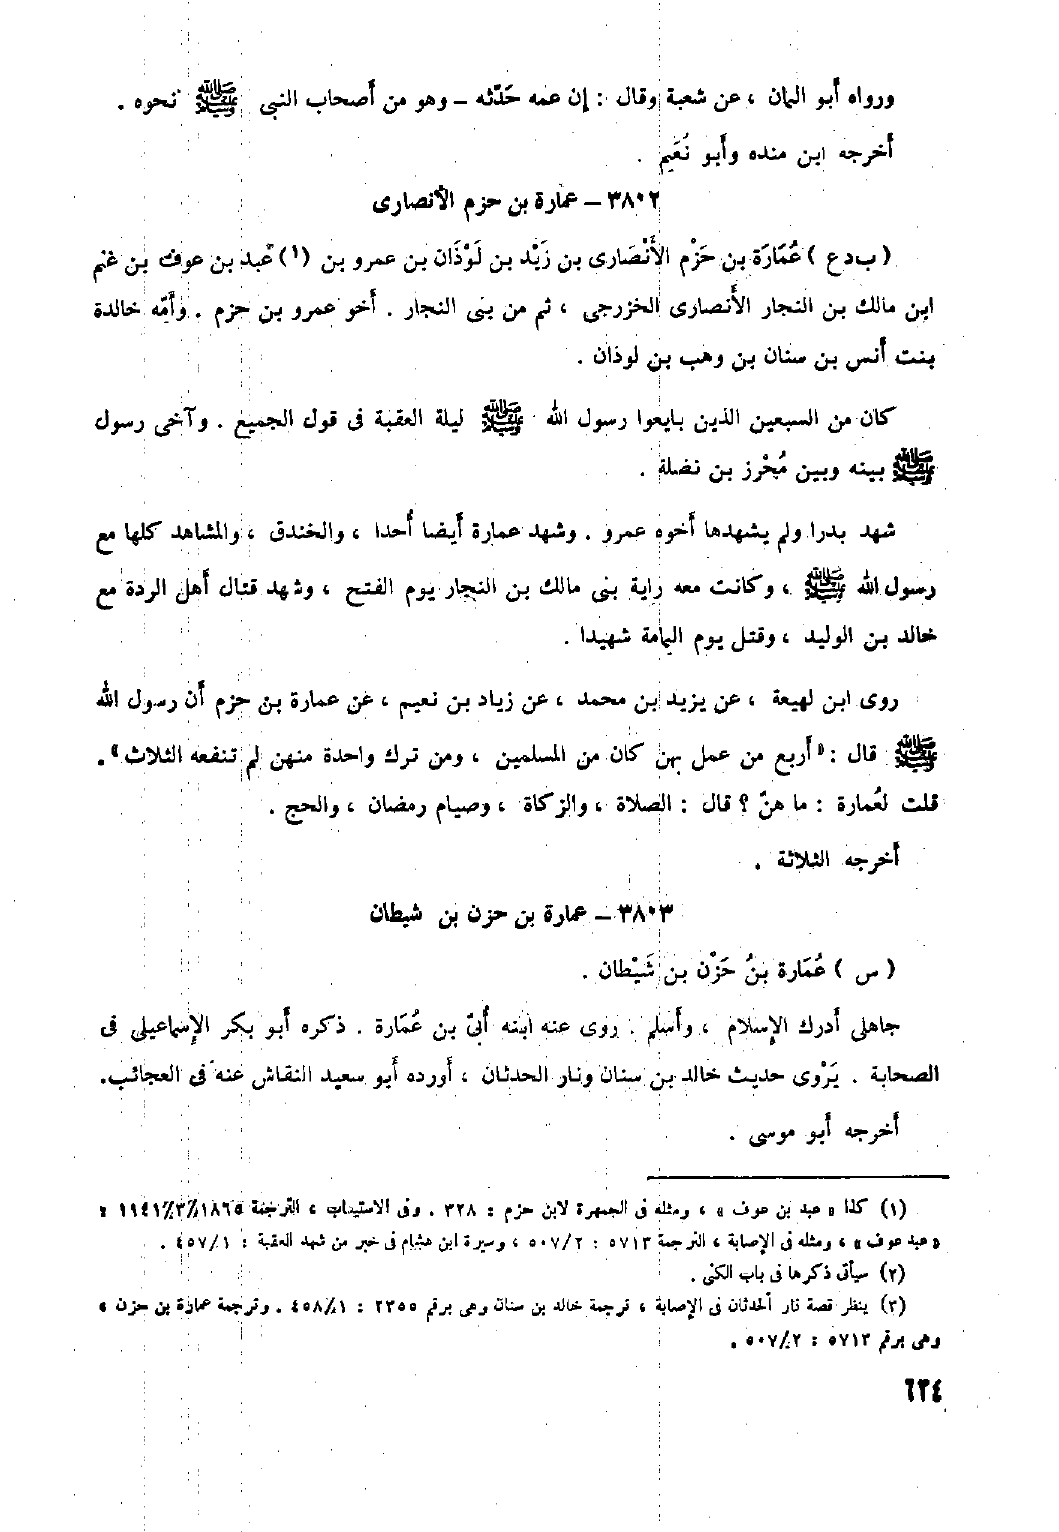 ورواه أبو اليمان ، عن شعبة وقال : إن عمه حَدّثه – وهو من أصحاب النبى ﷺ نحوه .
أخرجه ابن منده وأبو نُعَيم .
٣٨٠٢ – عمارة بن حزم الأنصارى
( ب د ع ) عُمَارَة بن حَزْم الأَنْصَارى بن زَيْد بن لَوْذَان بن عمرو بن (١) عبد بن عوف بن غنم
ابن مالك بن النجار الأنصارى الخزرجى ، ثم من بنى النجار . أخو عمرو بن حزم . وأمّه خالدة
بنت أنس بن سنان بن وهب بن لوذان .
كان من السبعين الذين بايعوا رسول الله ﷺ ليلة العقبة فى قول الجميع . وآخى رسول
ﷺ بينه وبين مُحْرز بن نضلة .
شهد بدرا ولم يشهدها أخوه عمرو . وشهد عمارة أيضا أُحدا ، والخندق ، والمشاهد كلها مع
رسول الله ﷺ ، وكانت معه راية بنى مالك بن النجار يوم الفتح ، وشهد قتال أهل الردة مع
خالد بن الوليد ، وقتل يوم اليمامة شهيدا .
روى ابن لهيعة ، عن يزيد بن محمد ، عن زياد بن نعيم ، عن عمارة بن حزم أن رسول الله
ﷺ قال : « أربع من عمل بهن كان من المسلمين ، ومن ترك واحدة منهن لم تنفعه الثلاث » .
قلت لعُمارة : ما هنّ ؟ قال : الصلاة ، والزكاة ، وصيام رمضان ، والحج .
أخرجه الثلاثة .
٣٨٠٣ – عمارة بن حزن بن شيطان
( س ) عُمَارة بنُ حَزْن بن شَيْطان .
جاهلى أدرك الإسلام ، وأسلم . روى عنه ابنه أُبىّ بن عُمَارة . ذكره أبو بكر الإسماعيلى فى
الصحابة . يَرْوى حديث خالد بن سنان ونار الحدثان ، أورده أبو سعيد النقاش عنه فى العجائب.
أخرجه أبو موسى .
(١) كذا « عبد بن عوف » ، ومثله فى الجمهرة لابن حزم : ٣٢٨ . وفى الاستيعاب ، الترجمة ١٨٦٥/٣/١١٤١ :
« عبد عوف » ، ومثله فى الإصابة ، الترجمة ٥٧١٣ : ٥٠٧/٢ ، وسيرة ابن هشام فى خبر من شهد العقبة : ٤٥٧/١ .
(٢) سيأتى ذكرها فى باب الكنى .
(٣) ينظر قصة نار الحدثان فى الإصابة ، ترجمة خالد بن سنان وهى برقم ٢٣٥٥ : ٤٥٨/١ . وترجمة عمارة بن حزن ،
وهى برقم ٥٧١٣ : ٥٠٧/٢ .
٦٣٤